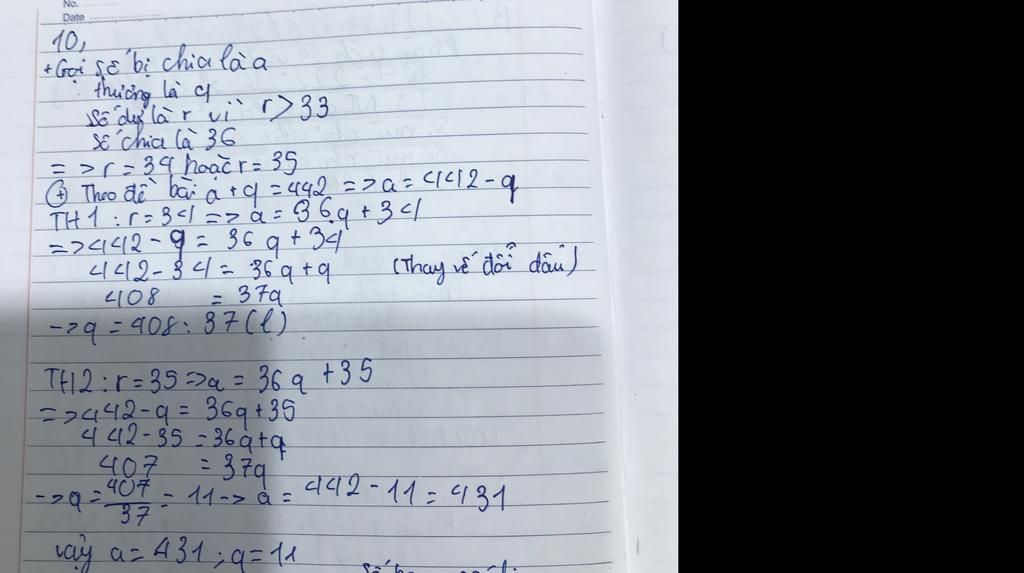 No.
Date
10,
+ Gọi số bị chia là a
thương là q
số dư là r vì r > 33
số chia là 36
=> r = 34 hoặc r = 35
(+) Theo đề bài a + q = 442 => a = 442 - q
TH1 : r = 34 => a = 36q + 34
=> 442 - q = 36q + 34
442 - 34 = 36q + q (Thay vế đổi dấu)
408 = 37q
-> q = 408 : 37 (l)
TH2 : r = 35 => a = 36q + 35
=> 442 - q = 36q + 35
442 - 35 = 36q + q
407 = 37q
-> q = 407/37 = 11 -> a = 442 - 11 = 431
vậy a = 431 ; q = 11